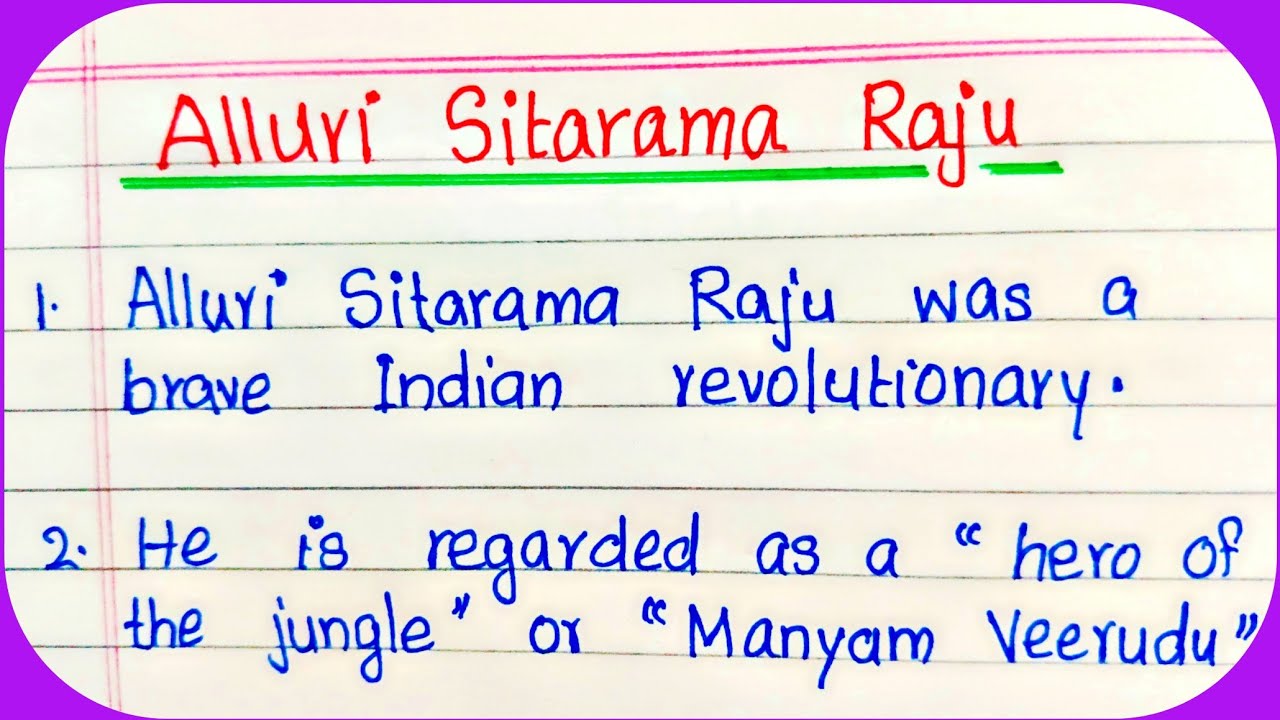 Alluri Sitarama Raju
1. Alluri Sitarama Raju was a
brave Indian revolutionary.
2. He is regarded as a "hero of
the jungle" or "Manyam Veerudu"